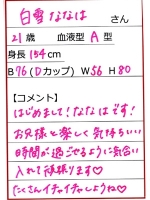 白雪ななは さん
21歳 血液型 A 型
身長 154cm
B76(Dカップ) W56 H80
【コメント】
はじめまして!ななはです!
お兄様と楽しく気持ちいい
時間が過ごせるように気合い
入れて頑張ります♡
たくさんイチャイチャしようね♡